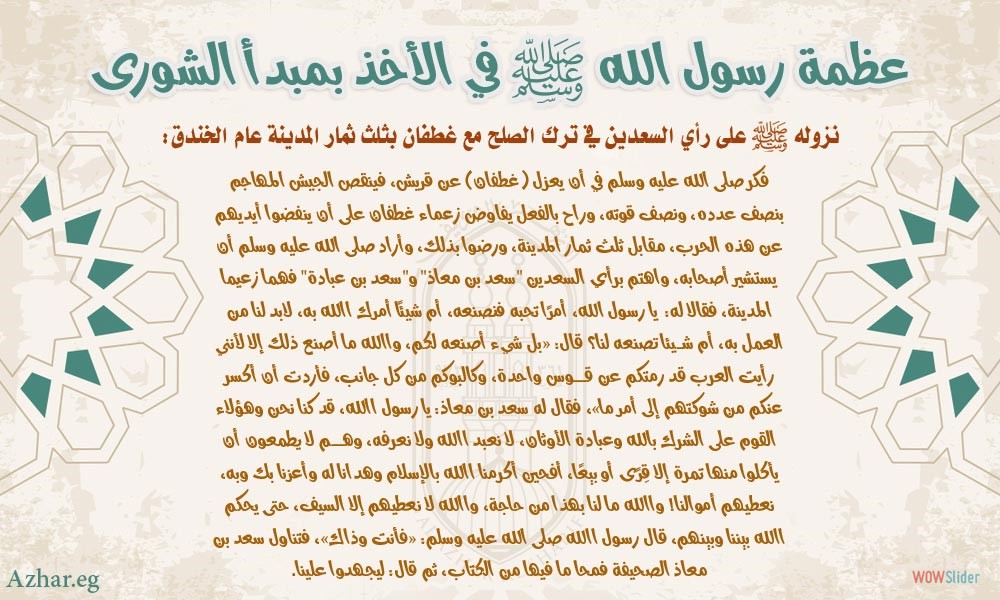 عظمة رسول الله ﷺ في الأخذ بمبدأ الشورى
نزوله ﷺ على رأي السعدين في ترك الصلح مع غطفان بثلث ثمار المدينة عام الخندق:
فكر صلى الله عليه وسلم في أن يعزل (غطفان) عن قريش، فينقص الجيش المهاجم
بنصف عدده، ونصف قوته، وراح بالفعل يفاوض زعماء غطفان على أن ينفضوا أيديهم
عن هذه الحرب، مقابل ثلث ثمار المدينة، ورضوا بذلك، وأراد صلى الله عليه وسلم أن
يستشير أصحابه، واهتم برأي السعدين "سعد بن معاذ" و"سعد بن عبادة" فهما زعيما
المدينة، فقالا له: يا رسول الله، أمرًا تحبه فنصنعه، أم شيئًا أمرك االله به، لابد لنا من
العمل به، أم شيئا تصنعه لنا؟ قال: «بل شيء أصنعه لكم، واالله ما أصنع ذلك إلا لأنني
رأيت العرب قد رمتكم عن قوس واحدة، وكالبوكم من كل جانب، فأردت أن أكسر
عنكم من شوكتهم إلى أمر ما»، فقال له سعد بن معاذ: يا رسول االله، قد كنا نحن وهؤلاء
القوم على الشرك بالله وعبادة الأوثان، لا نعبد االله ولا نعرفه، وهم لا يطمعون أن
يأكلوا منها تمرة إلا قِرًى أو بيعًا، أفحين أكرمنا االله بالإسلام وهدانا له وأعزنا بك وبه،
نعطيهم أموالنا! واالله ما لنا بهذا من حاجة، واالله لا نعطيهم إلا السيف، حتى يحكم
االله بيننا وبينهم، قال رسول االله صلى الله عليه وسلم: «فأنت وذاك»، فتناول سعد بن
معاذ الصحيفة فمحا ما فيها من الكتاب، ثم قال: ليجهدوا علينا.
Azhar.eg
WOWSlider